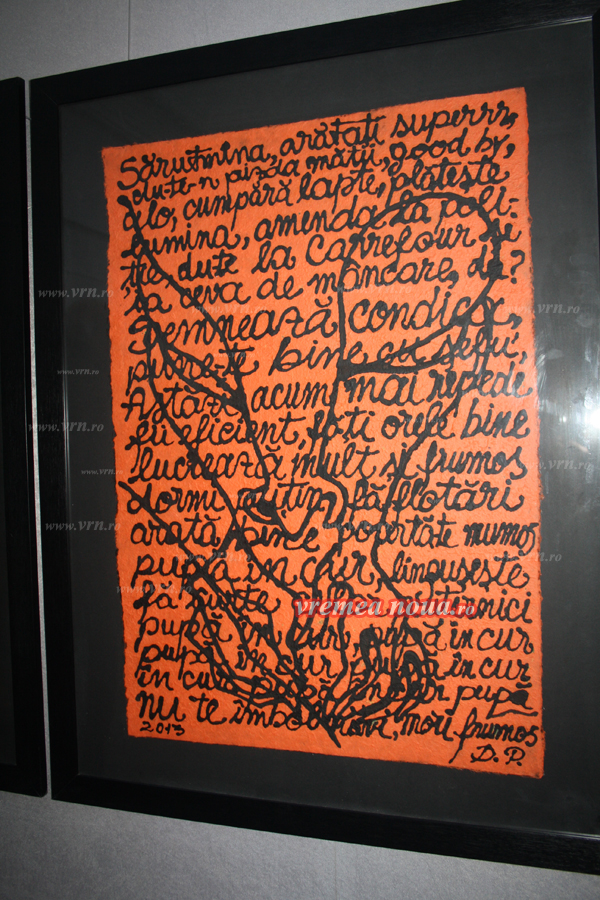 Sărutmîna, arătați superrr,
du-te-n pizda mătii, good by,
alo, cumpără lapte, plătește
lumina, amenda la poli-
ție, du-te la Carrefour și
ia ceva de mâncare, da?
Semnează condica,
pune-te bine cu șefu',
Astări acum mai repede
fii eficient, fă-ți orele bine
lucrează mult și frumos
dormi puțin, fă flotări
arată bine poartăte numos
pupă în cur, lingușește
fă
pupă în cur, pupă în cur
pupă în cur pupă în cur
în cur pupă în cur pupă
nu te îmbolnăvi, mori frumos
2013
D. P.
www.vrn.ro
www.vrn.ro
www.vrn.ro
www.vrn.ro
www.vrn.ro
www.vrn.ro
www.vrn.ro
www.vrn.ro
vremea noua.ro